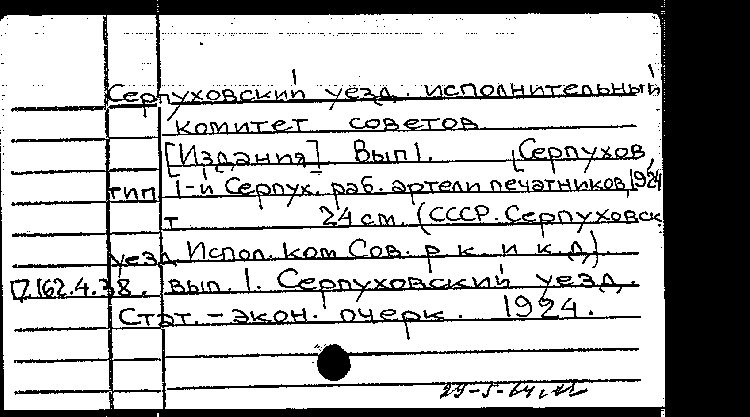 Серпуховский уезд. исполнительный
комитет советов
[Издания] Вып 1. [Серпухов,
тип 1-й Серпух. раб. артели печатников, 1924
т 24 см. (СССР. Серпуховск
уезд Испол. ком Сов. р к. и к. д)
П.162.4.38. вып. 1. Серпуховский уезд.
Стат. - экон. очерк. 1924.